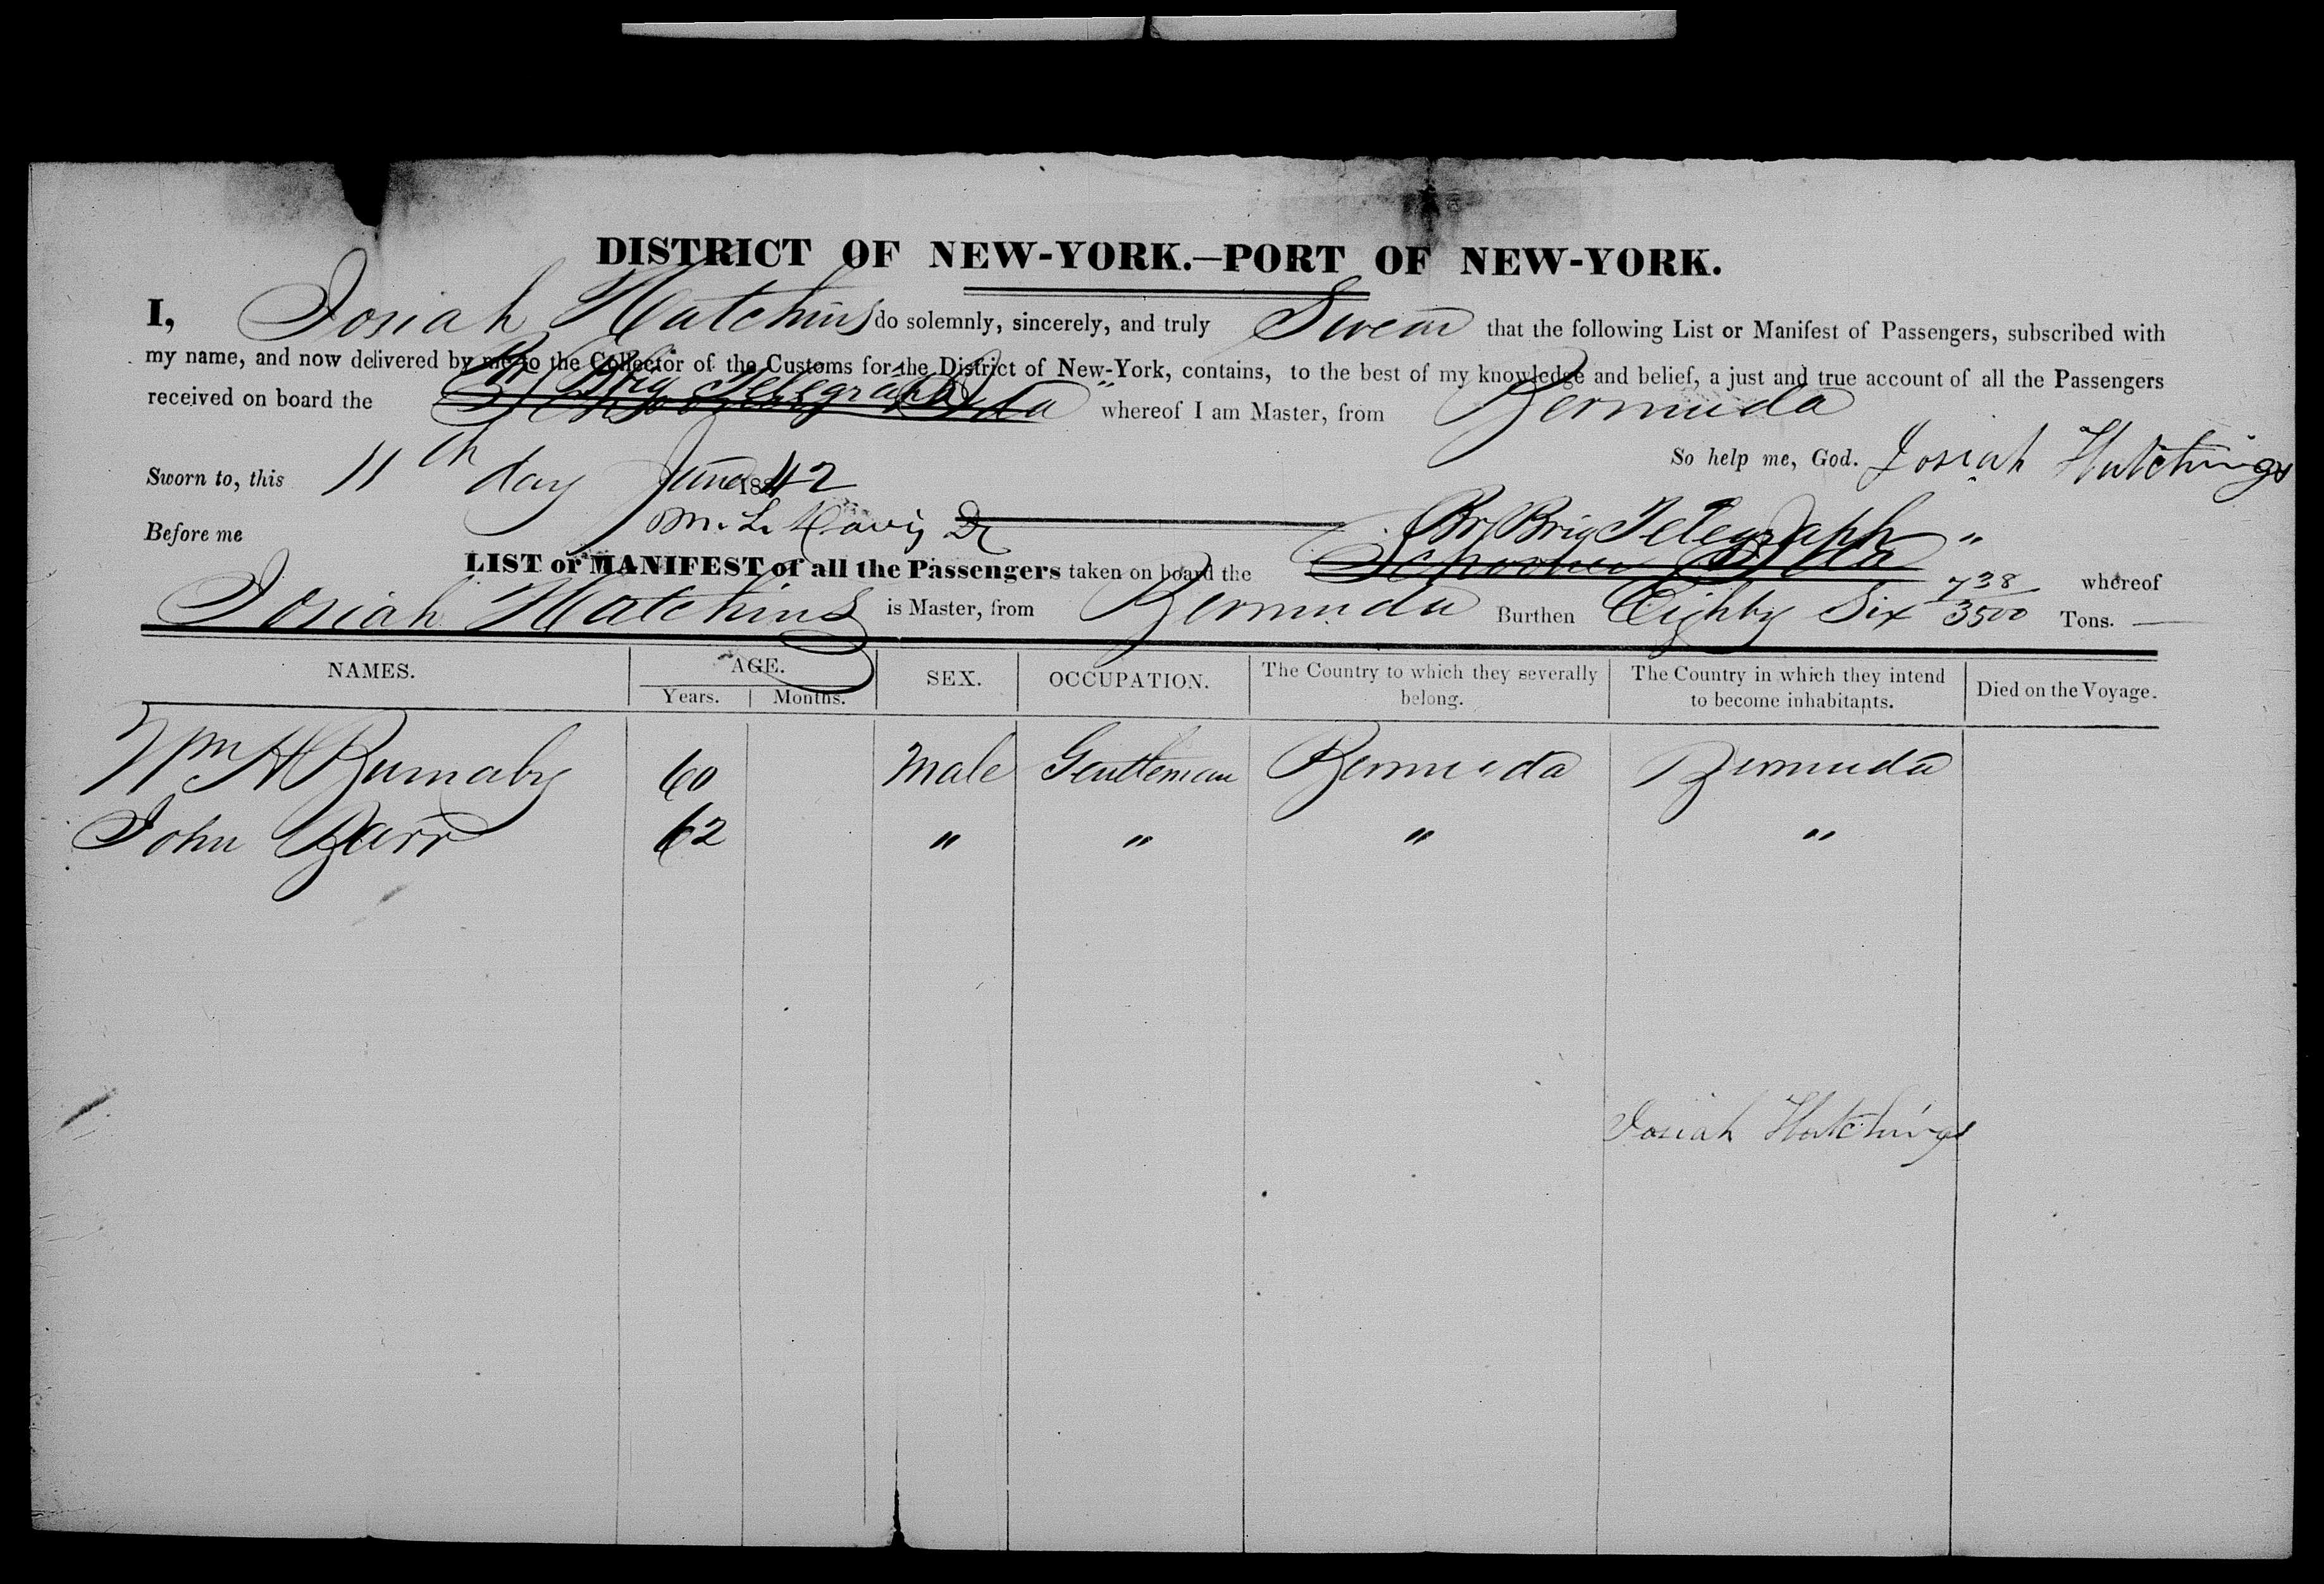 DISTRICT OF NEW-YORK.—PORT OF NEW-YORK.
I, Josiah Hutchins do solemnly, sincerely, and truly Swear that the following List or Manifest of Passengers, subscribed with
my name, and now delivered by me to the Collector of the Customs for the District of New-York, contains, to the best of my knowledge and belief, a just and true account of all the Passengers
Br Brig Telegraph
received on board the Schooner " whereof I am Master, from Bermuda
So help me, God. Josiah Hutchings
Sworn to, this 11th day June 1842
Before me M. L. Davis
Br Brig Telegraph "
LIST or MANIFEST of all the Passengers taken on board the Schooner whereof
Josiah Hutchins is Master, from Bermuda Burthen Eighty Six 738/3500 Tons. —
NAMES. AGE. SEX. OCCUPATION. The Country to which they severally belong. The Country in which they intend to become inhabitants. Died on the Voyage.
Years. Months.
Wm H Burnaby 60 Male Gentleman Bermuda Bermuda
John Barr 62 " " " "
Josiah Hutchings